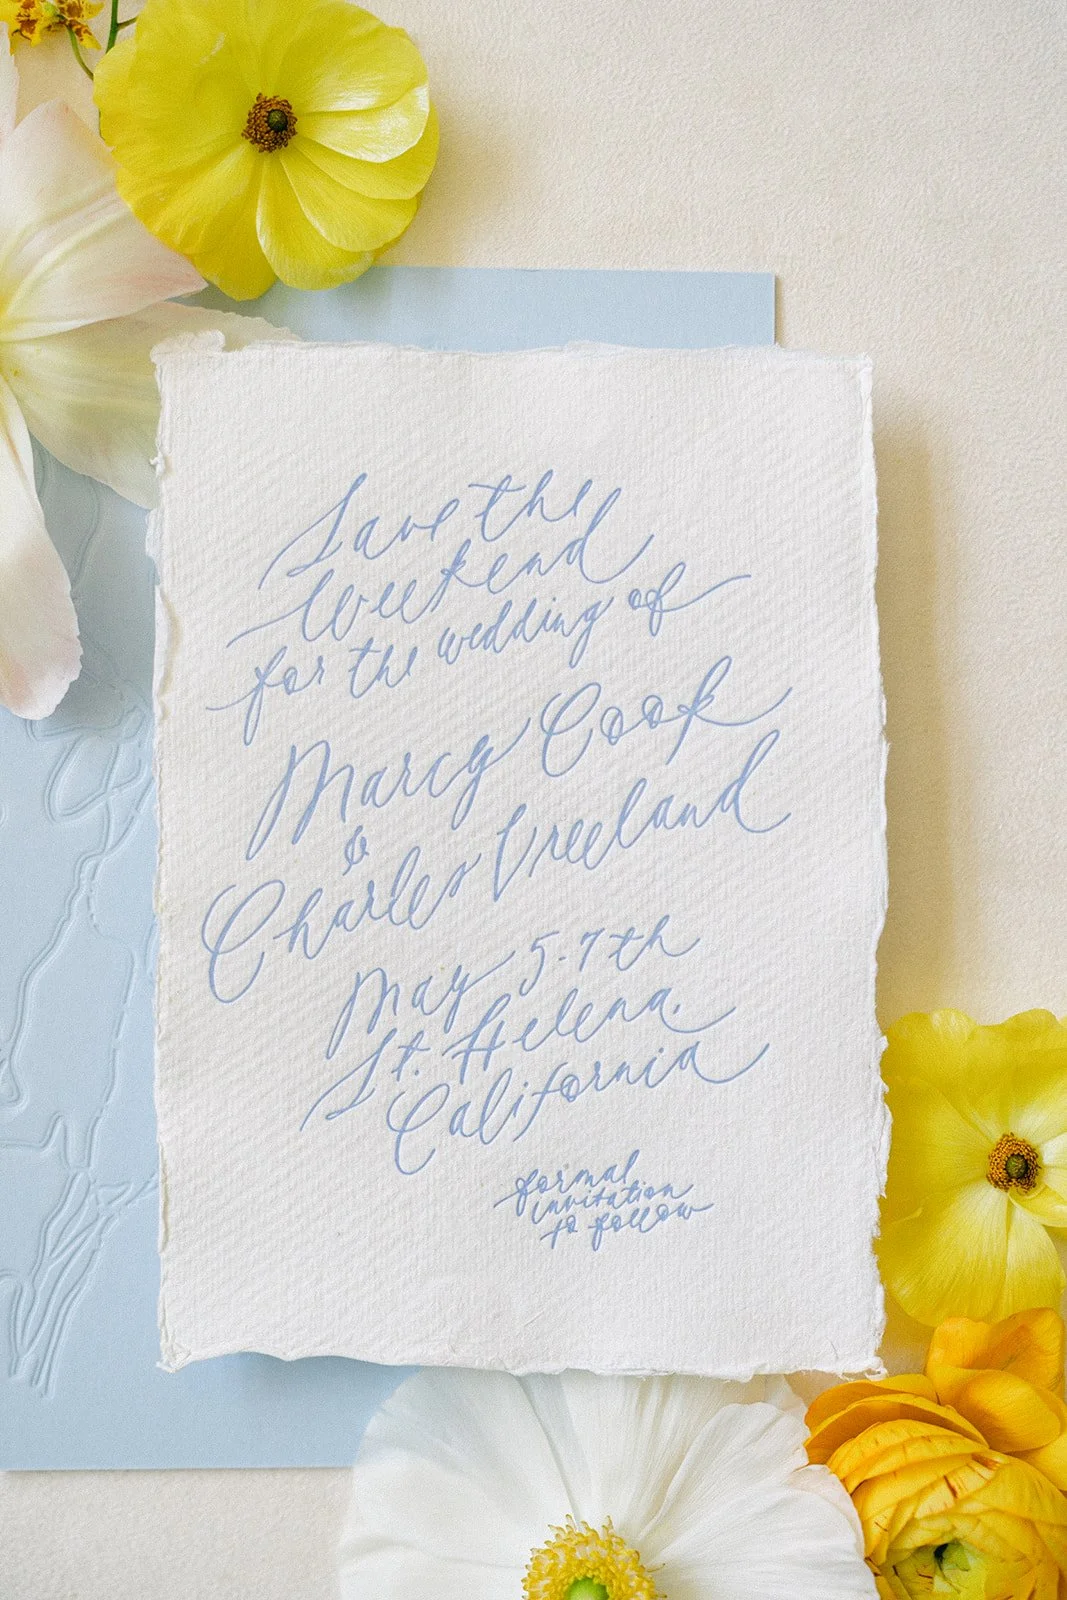 Save the
Weekend
for the wedding of
Marcy Cook
&
Charles Vreeland
May 5-7th
St. Helena,
California
formal
invitation
to follow